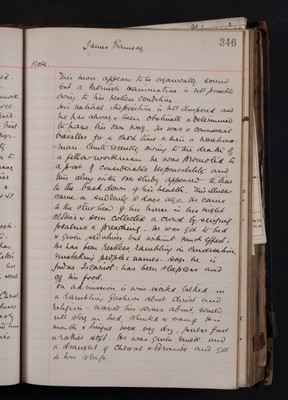 346
James Ramsay
This man appears to be organically sound
but a thorough examination is not possible
owing to his restless condition.
His natural disposition is hot tempered and
he has always been obstinate & determined
to have his own way. He was a commercial
traveller for a short time & then a warehouse
man. Quite recently owing to the death of
a fellow workman he was promoted to
a post of considerable responsibility and
this along with over study appeared to lead
to the break down of his health. This illness
came on suddenly 10 days ago. He came
to the other end of his house in his night
clothes & soon collected a crowd by singing
psalms & preaching. He was got to bed
& given sedatives but without much effect.
He has been restless rambling in conversation
mistaking people's names. Says he is
Judas Iscariot: has been sleepless and
off his food.
On admission is was excited, talked in
a rambling fashion about Christ and
religion. Waved his arms about, would
not stay in bed, shouted & sang. His
mouth & tongue were very dry, pulse fast
& rather soft. He was given milk and
a draught of Chloral & Bromide and got
to sleep.